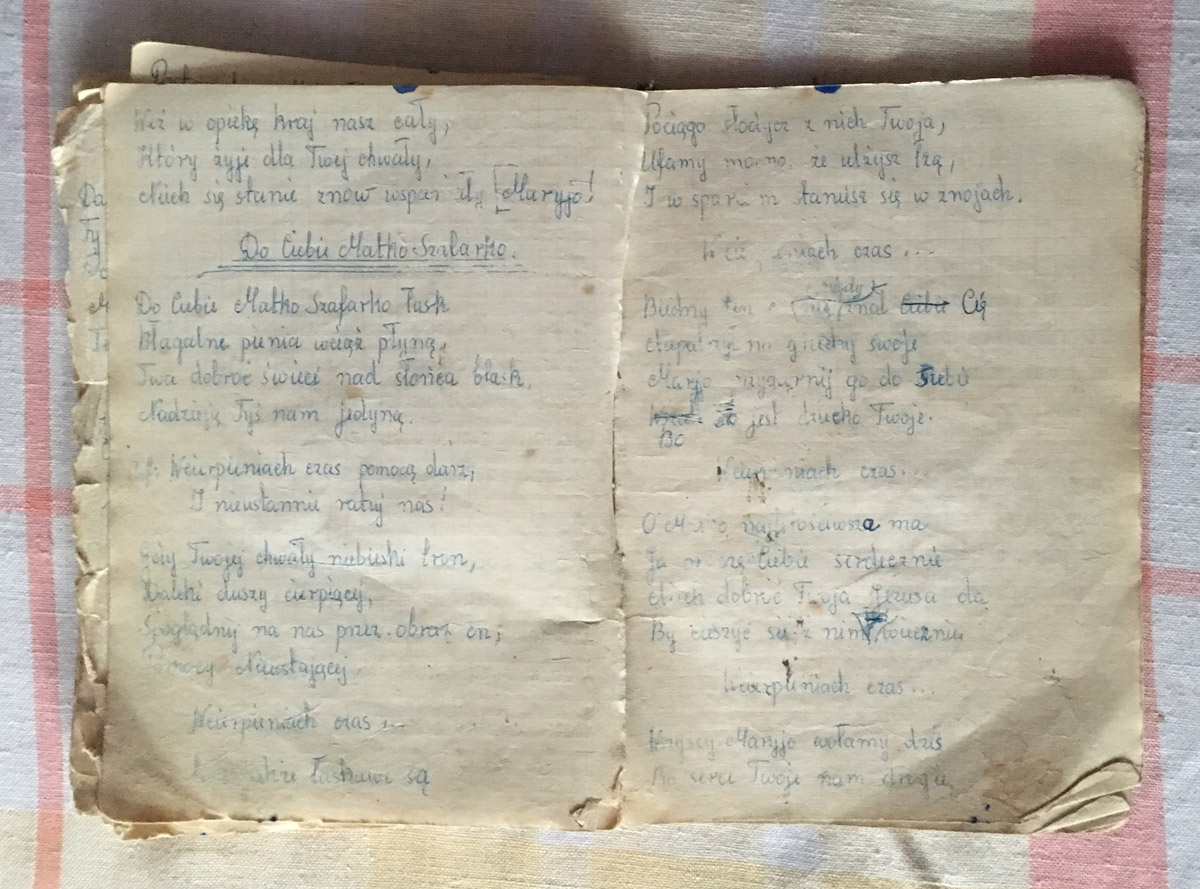 Weź w opiekę kraj nasz cały,
Który żyje dla Twej chwały,
Niech się stanie znów wspaniały Maryjo!
Do Ciebie Matko Szafarko.
Do Ciebie Matko Szafarko łask
Błagalne pienia wciąż płyną,
Twa dobroć świeci nad słońca blask,
Nadzieją Tyś nam jedyną.
W cierpieniach czas pomocą darz,
I nieustannie ratuj nas!
Twojej chwały niebieski tron,
duszy cierpiącej,
Spoglądnij na nas przez obraz on,
Pomocy Nieustającej.
W cierpieniach czas...
łaskawe są
z nich Twoja,
Ufamy że ulżysz łzą,
I w staniesz się w znojach.
czas...
Biedny ten znał Ciebie Cię
grzechy swoje
Maryjo przygarnij go do Siebie
Bo jest dziecko Twoje.
W cierpieniach czas...
O najlitościwsza ma
Ja proszę Ciebie serdecznie
Niech dobroć Twoja Jezusa da
By cieszyć się z nim wiecznie
W cierpieniach czas...
Wszyscy Maryjo wołamy dziś
Bo serce Twoje nam drogie,